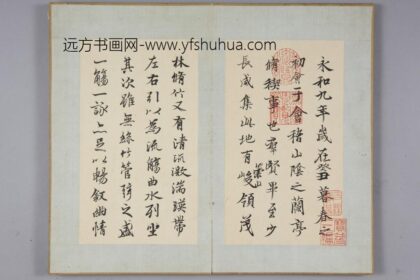 远方书画网-www.yfshuhua.com
永和九年歲在癸丑暮春之
初會于會稽山陰之蘭亭
脩稧事也羣賢畢至少
長咸集此地有崇山峻領茂
林脩竹又有清流激湍暎帶
左右引以為流觴曲水列坐
其次雖無絲竹管弦之盛
一觴一詠亦足以暢敘幽情